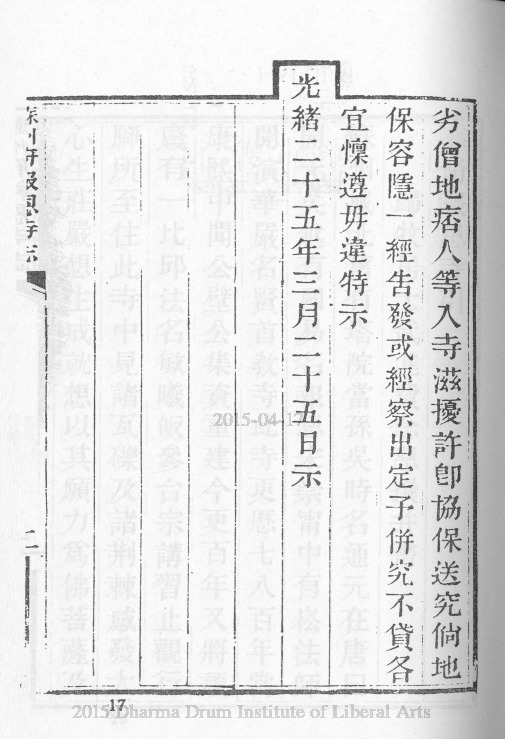 劣僧地痞人等入寺滋擾許卽協保送究倘地
保容隱一經告發或經察出定予併究不貸各
宜懍遵毋違特示
光緒二十五年三月二十五日示
蘇州府報恩寺志
二
17
2015-04-17
2015 Dharma Drum Institute of Liberal Arts